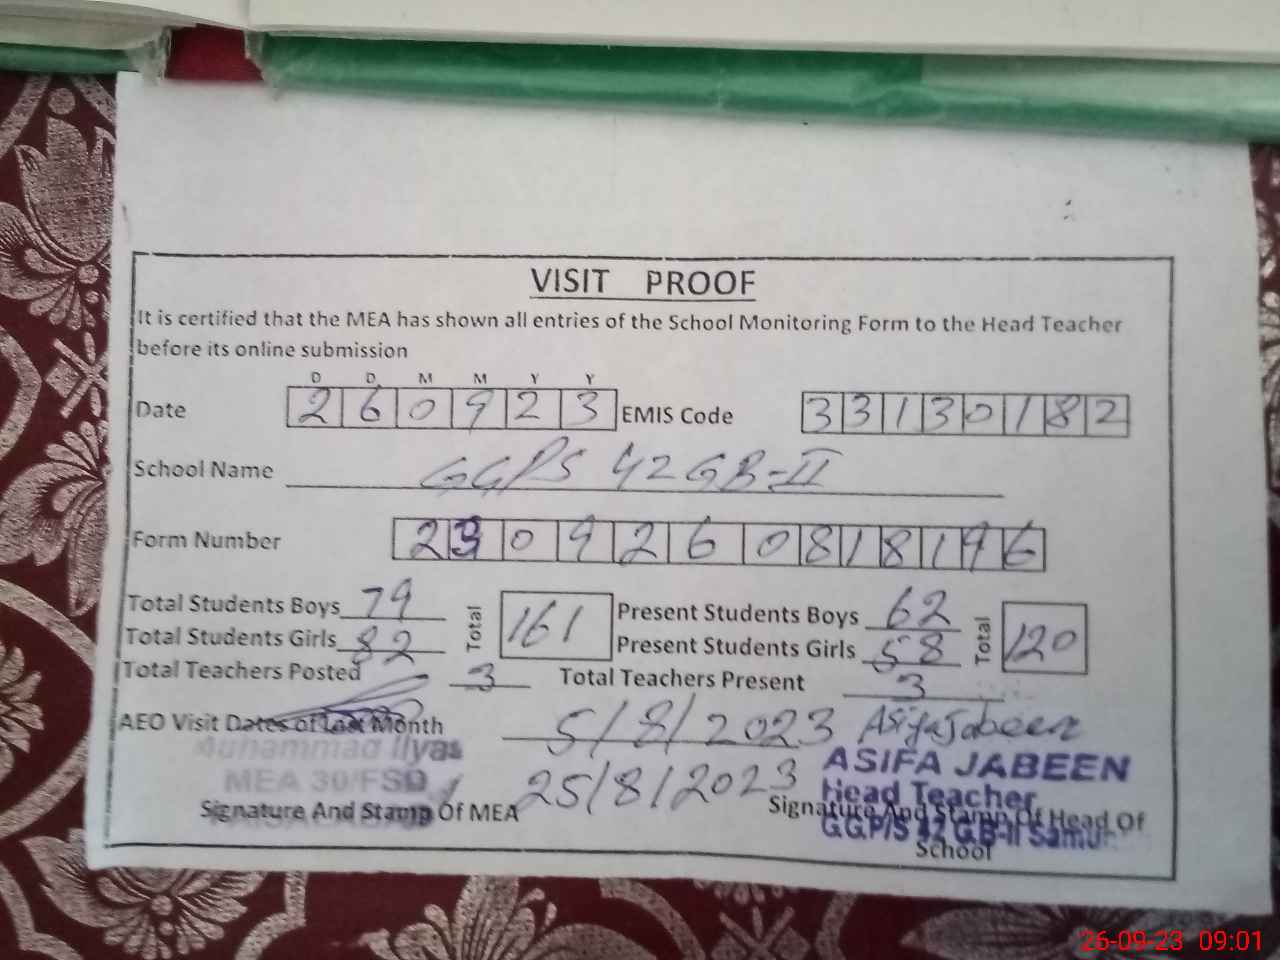 VISIT PROOF
It is certified that the MEA has shown all entries of the School Monitoring Form to the Head Teacher
before its online submission
D D M M Y Y
Date 260923 EMIS Code 33130182
School Name GGPS 42GB-II
Form Number 2309260818196
Total Students Boys 79 Total 161 Present Students Boys 62 Total 120
Total Students Girls 82 Present Students Girls 58
Total Teachers Posted 3 Total Teachers Present 3
AEO Visit Dates of Last Month 5/8/2023 Asifa Jabeen
25/8/2023
Muhammad Ilyas
MEA 30/FSD
Signature And Stamp Of MEA
ASIFA JABEEN
Head Teacher
G.G.P/S 42 G.B-II
Signature And Stamp Of Head Of
School
26-09-23 09:01